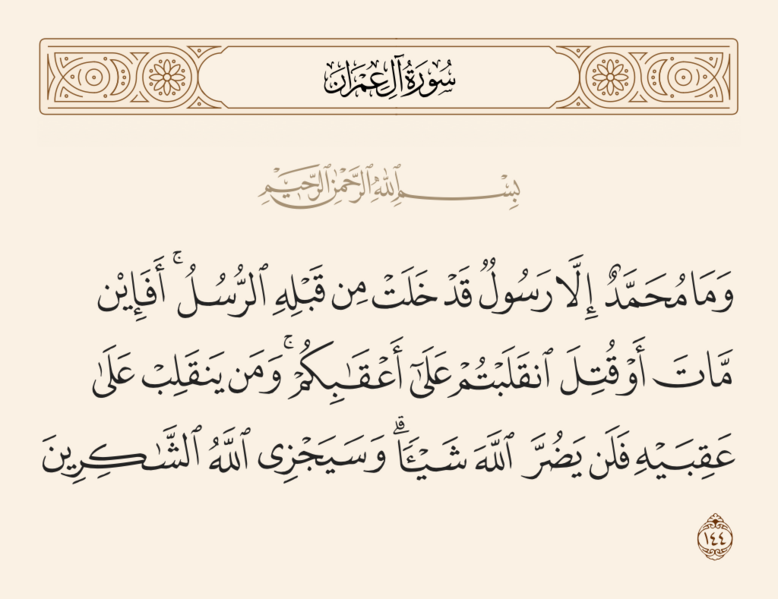 سُورَةُ آلِ عِمۡرَانَ
بِسۡمِ ٱللَّهِ ٱلرَّحۡمَٰنِ ٱلرَّحِيمِ
وَمَا مُحَمَّدٌ إِلَّا رَسُولٞ قَدۡ خَلَتۡ مِن قَبۡلِهِ ٱلرُّسُلُۚ أَفَإِيْن
مَّاتَ أَوۡ قُتِلَ ٱنقَلَبۡتُمۡ عَلَىٰٓ أَعۡقَٰبِكُمۡۚ وَمَن يَنقَلِبۡ عَلَىٰ
عَقِبَيۡهِ فَلَن يَضُرَّ ٱللَّهَ شَيۡـٔٗاۗ وَسَيَجۡزِي ٱللَّهُ ٱلشَّٰكِرِينَ
١٤٤